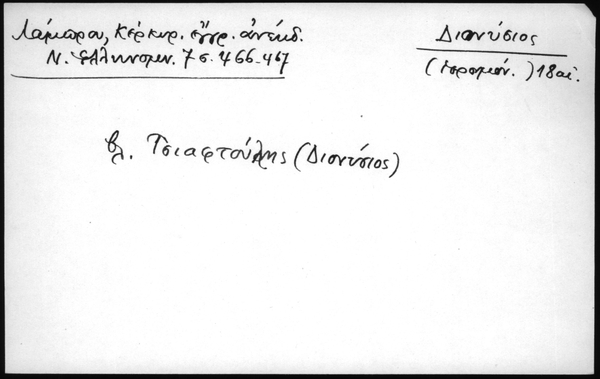 Λάμπρου, Κέρκυρ. ἔγγρ. ἀνέκδ.
Ν. Ἑλληνομν. 7 σ. 466-467
Διονύσιος
(ἱερομόν.) 18 αἰ.
βλ. Τσιαφτούλης (Διονύσιος)